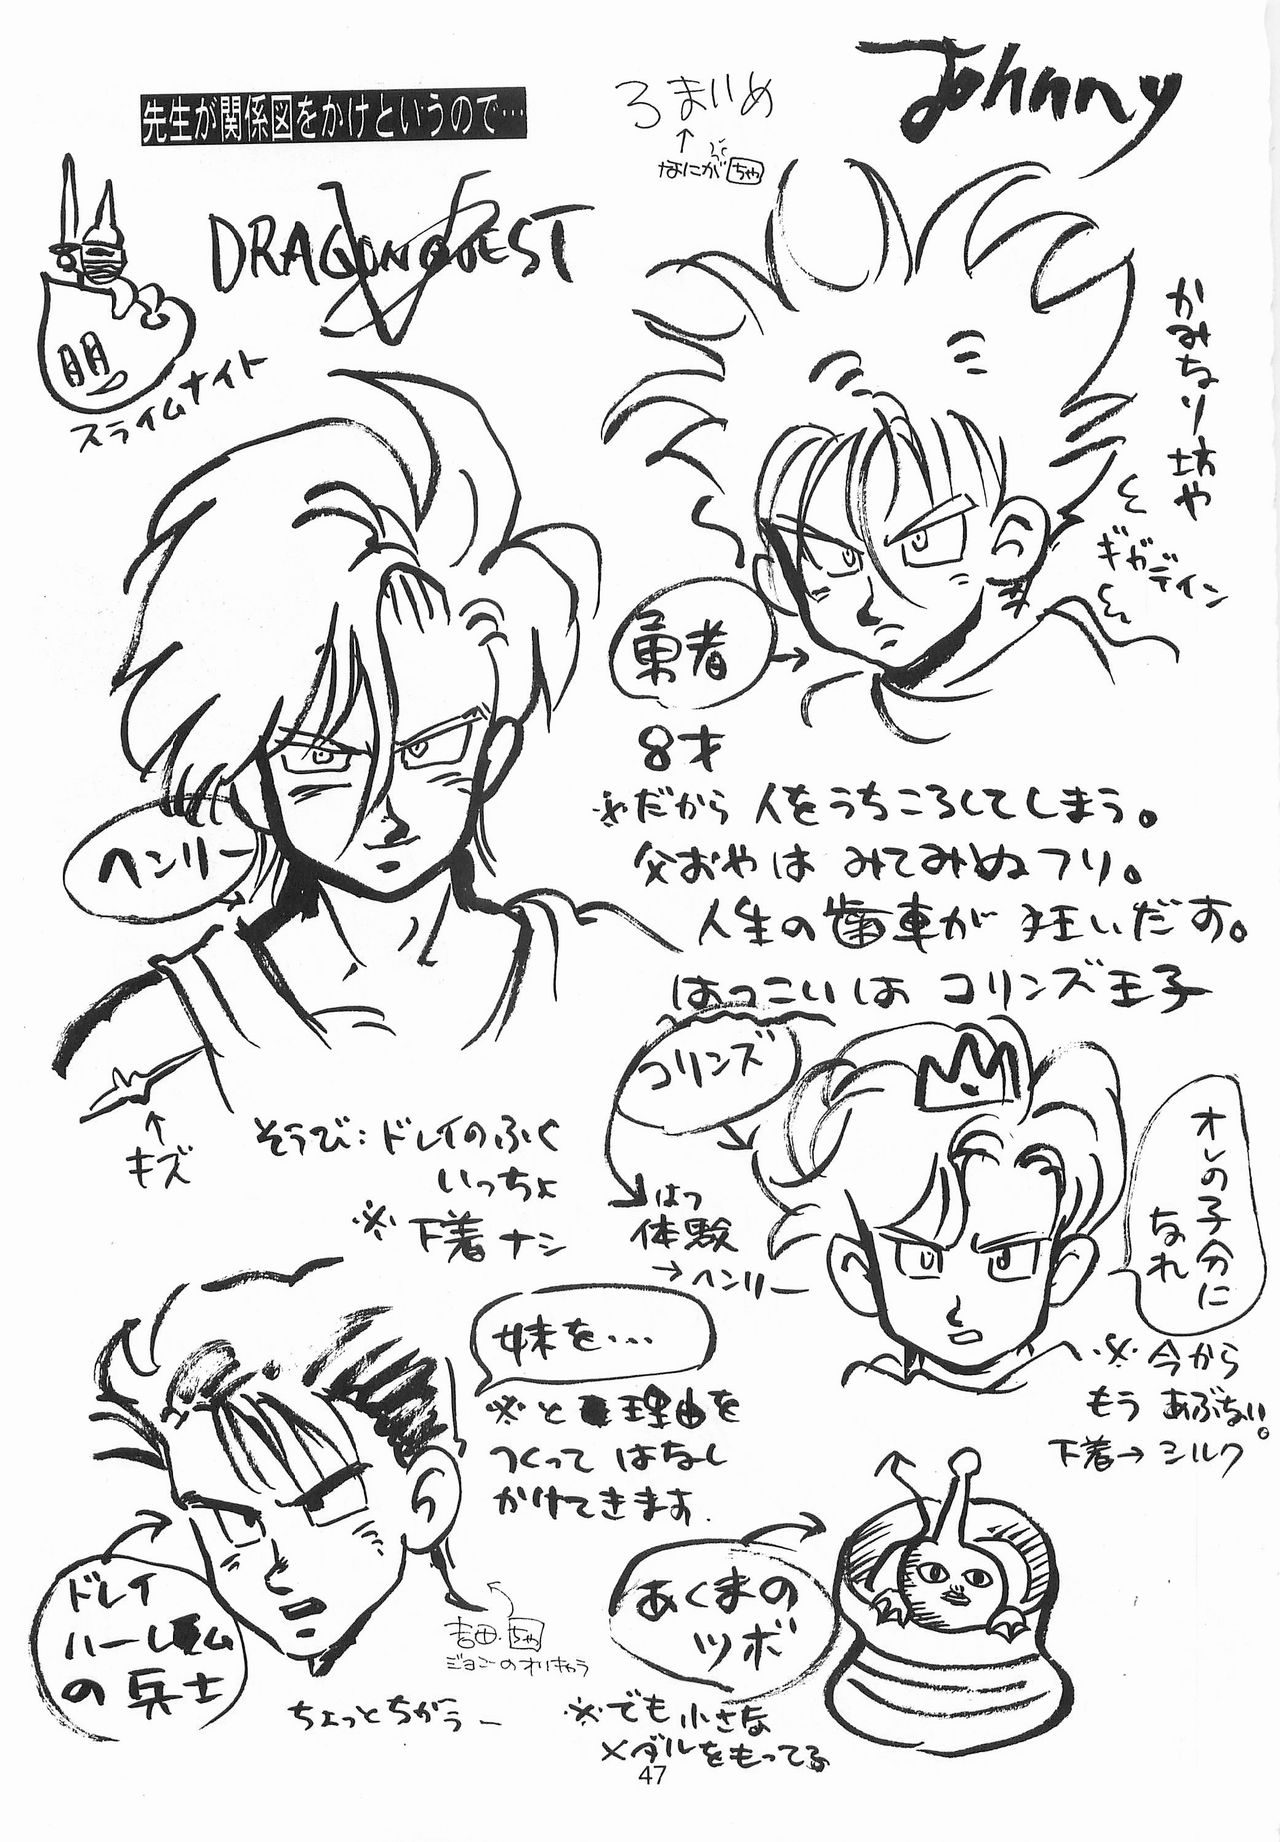 先生が関係図をかけというので…
Johnny
ろまいめ
↑
なにが ちゃ
DRAGONQUEST
V
スライムナイト
かみなり坊や
ギガデイン
勇者
8才
※だから 人をうちころしてしまう。
父おやは みてみぬフリ。
人生の歯車が 狂いだす。
はつこいは コリンズ王子
ヘンリー
↑
キズ
そうび:ドレイのふく
いっちょ
※下着ナシ
コリンズ
はつ
体験
→ヘンリー
オレの子分に
なれ
※今から
もう あぶない。
下着→シルク
妹を…
※と 理由を
つくって はなし
かけてきます.
ドレイ
ハーレム
の兵士
吉田. ちゃ
ジョニーのオリキャラ
ちょっとちがうー
あくまの
ツボ
※でも小さな
メダルをもってる
47